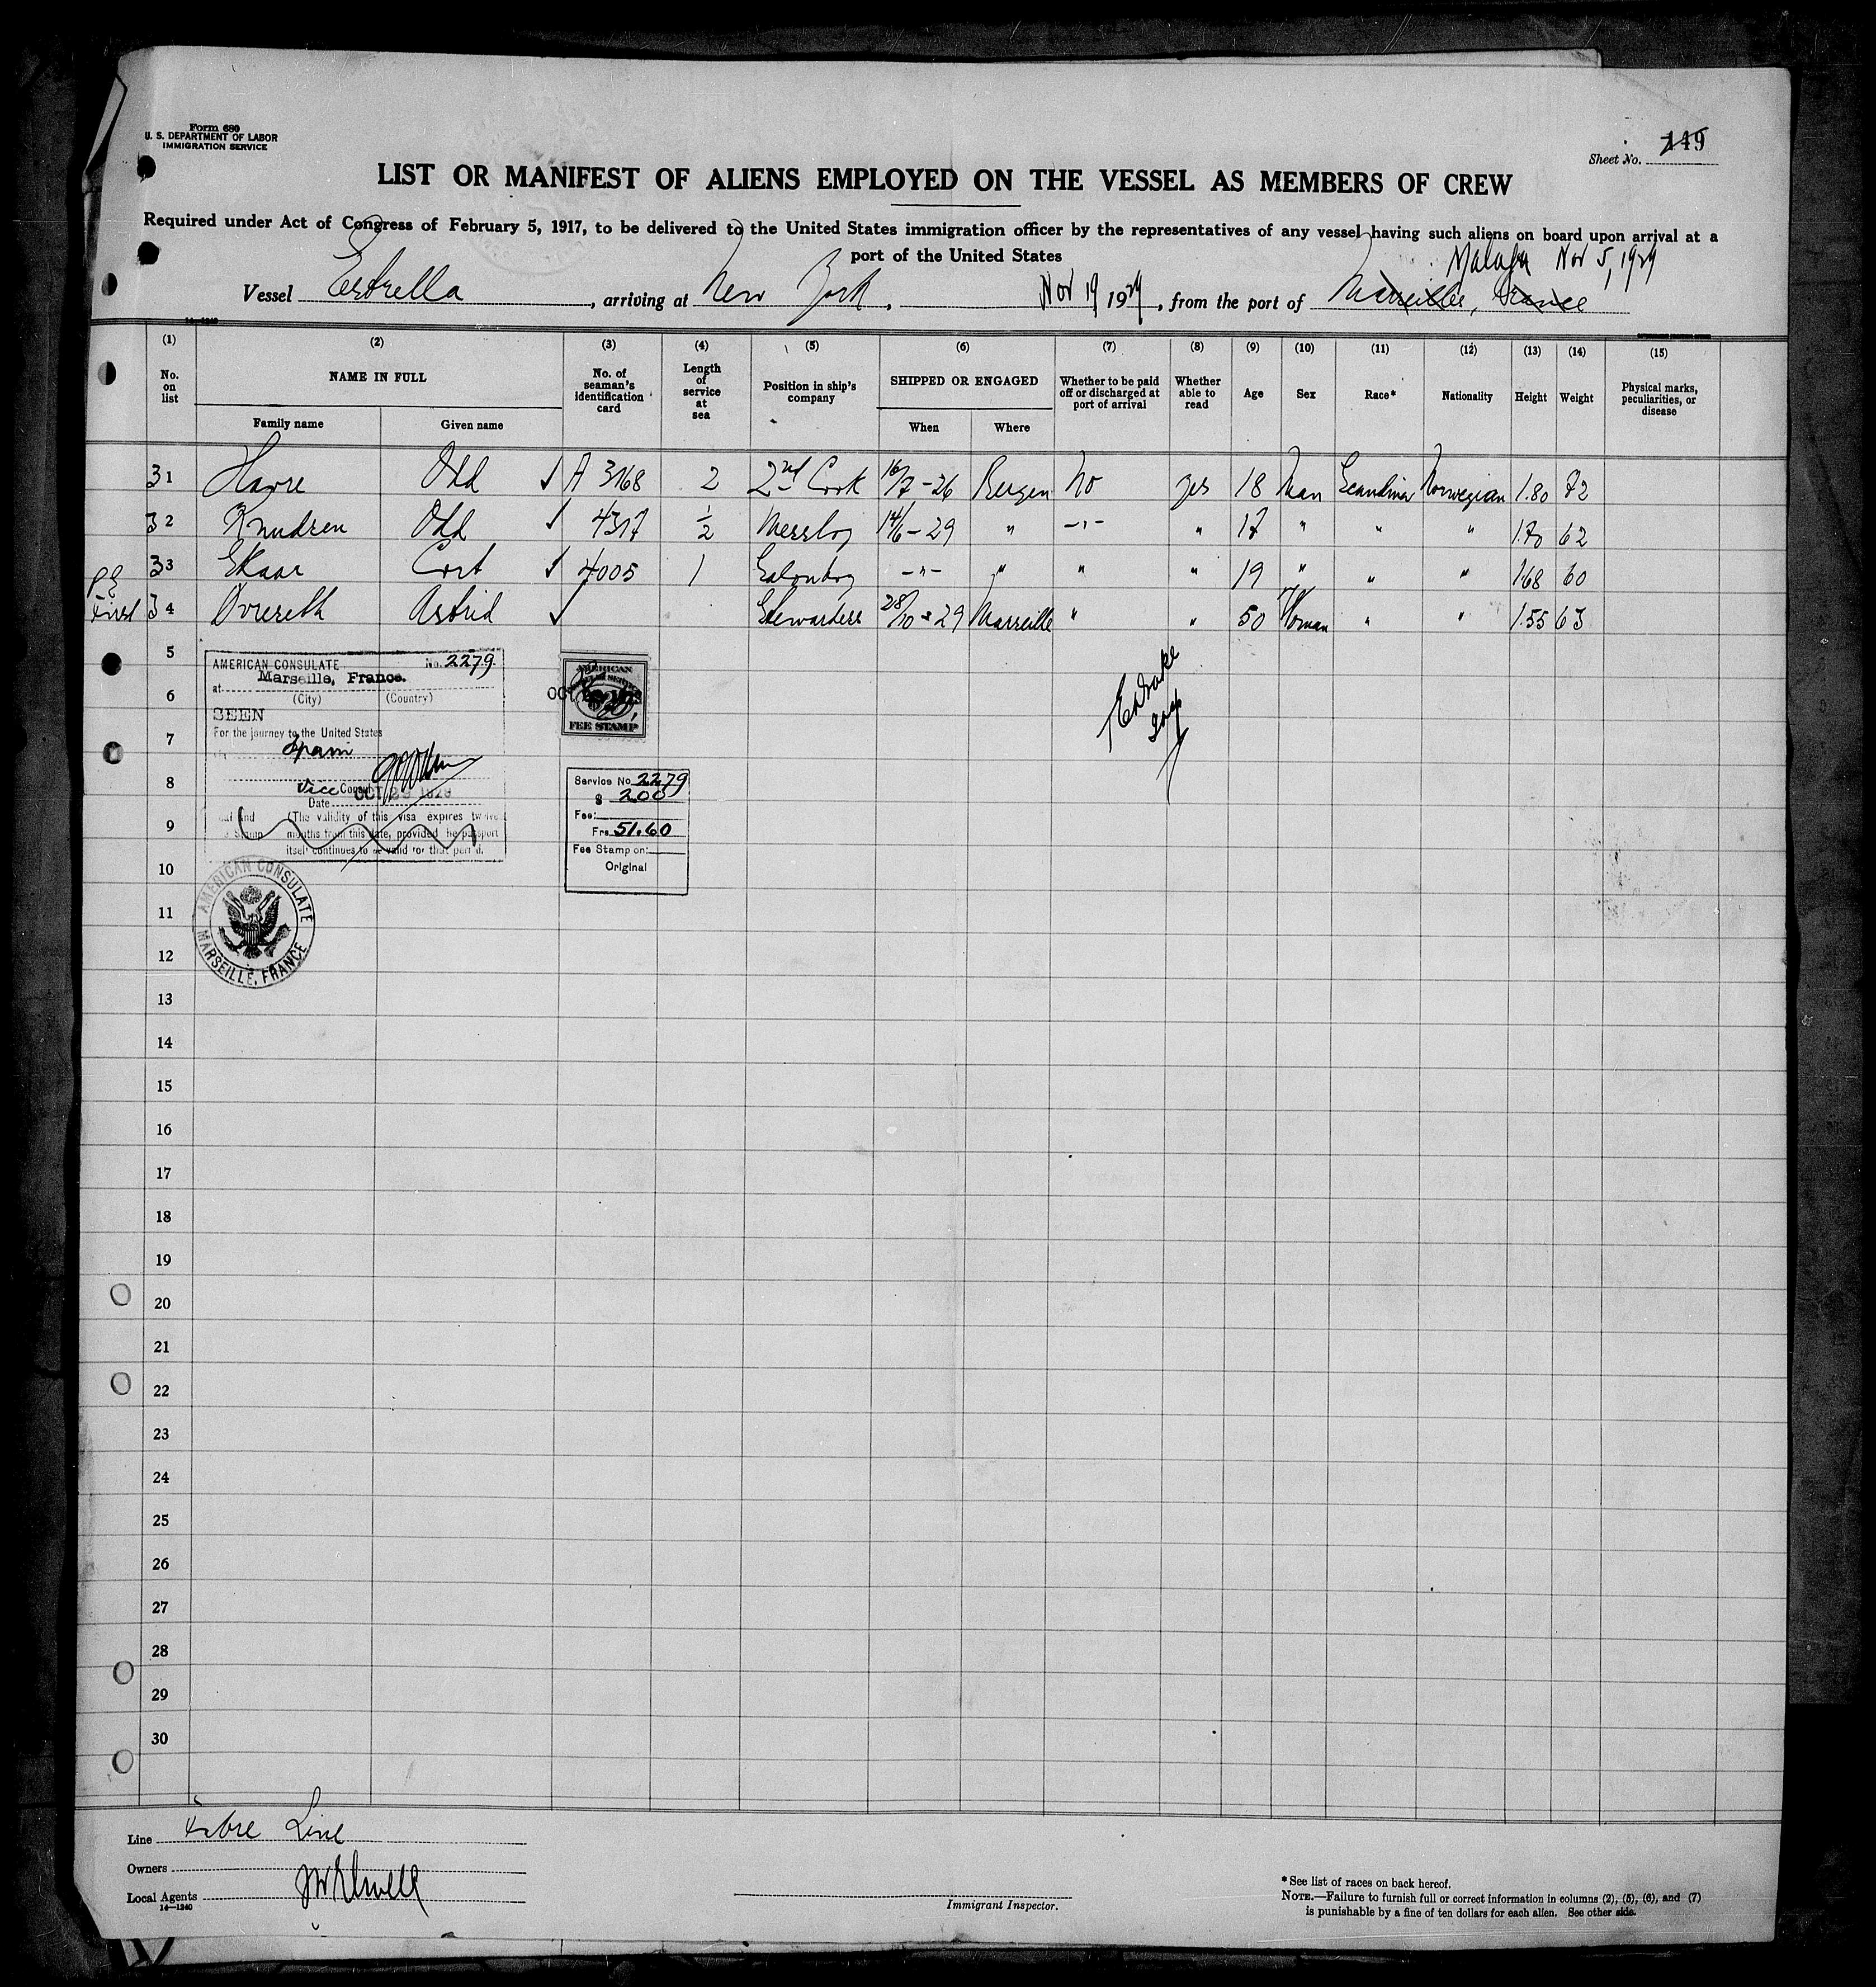 Form 680
U. S. DEPARTMENT OF LABOR
IMMIGRATION SERVICE
Sheet No. 149
LIST OR MANIFEST OF ALIENS EMPLOYED ON THE VESSEL AS MEMBERS OF CREW
Required under Act of Congress of February 5, 1917, to be delivered to the United States immigration officer by the representatives of any vessel having such aliens on board upon arrival at a
port of the United States
Malaga Nov 5, 1929
Vessel Estrella, arriving at New York, Nov 19 1929, from the port of Marseilles, France
14—1240
(1) (2) (3) (4) (5) (6) (7) (8) (9) (10) (11) (12) (13) (14) (15)
No. on list NAME IN FULL No. of seaman's identification card Length of service at sea Position in ship's company SHIPPED OR ENGAGED Whether to be paid off or discharged at port of arrival Whether able to read Age Sex Race* Nationality Height Weight Physical marks, peculiarities, or disease
Family name Given name When Where
31 Odd A 3168 2 2nd Cook 16/7-26 Bergen No yes 18 Man Scandinav Norwegian 1.80 72
32 Knudsen Odd 4317 1/2 Messboy 14/6-29 " -"- " 17 " " " 1.70 62
33 Skaar Cort 4005 1 -"- " " " 19 " " " 1.68 60
First 34 Ovrereth Astrid Stewardess 28/10-29 Marseille " " 50 Woman " " 1.55 63
5
AMERICAN CONSULATE No. 2279
at Marseille, France.
(City) (Country)
SEEN
For the journey to the United States
Spain
Vice Consul
Date OCT 29 1929
(The validity of this visa expires twelve
months from this date, provided the passport
itself continues to be valid for that period.
AMERICAN
FEE STAMP
Service No. 2279
$ 200
Fee:
Frs 51.60
Fee Stamp on:
Original
AMERICAN CONSULATE
MARSEILLE, FRANCE
6
7
8
9
10
11
12
13
14
15
16
17
18
19
20
21
22
23
24
25
26
27
28
29
30
Line Fabre Line
Owners
Local Agents
14—1240
Immigrant Inspector.
*See list of races on back hereof.
NOTE.—Failure to furnish full or correct information in columns (2), (5), (6), and (7)
is punishable by a fine of ten dollars for each alien. See other side.